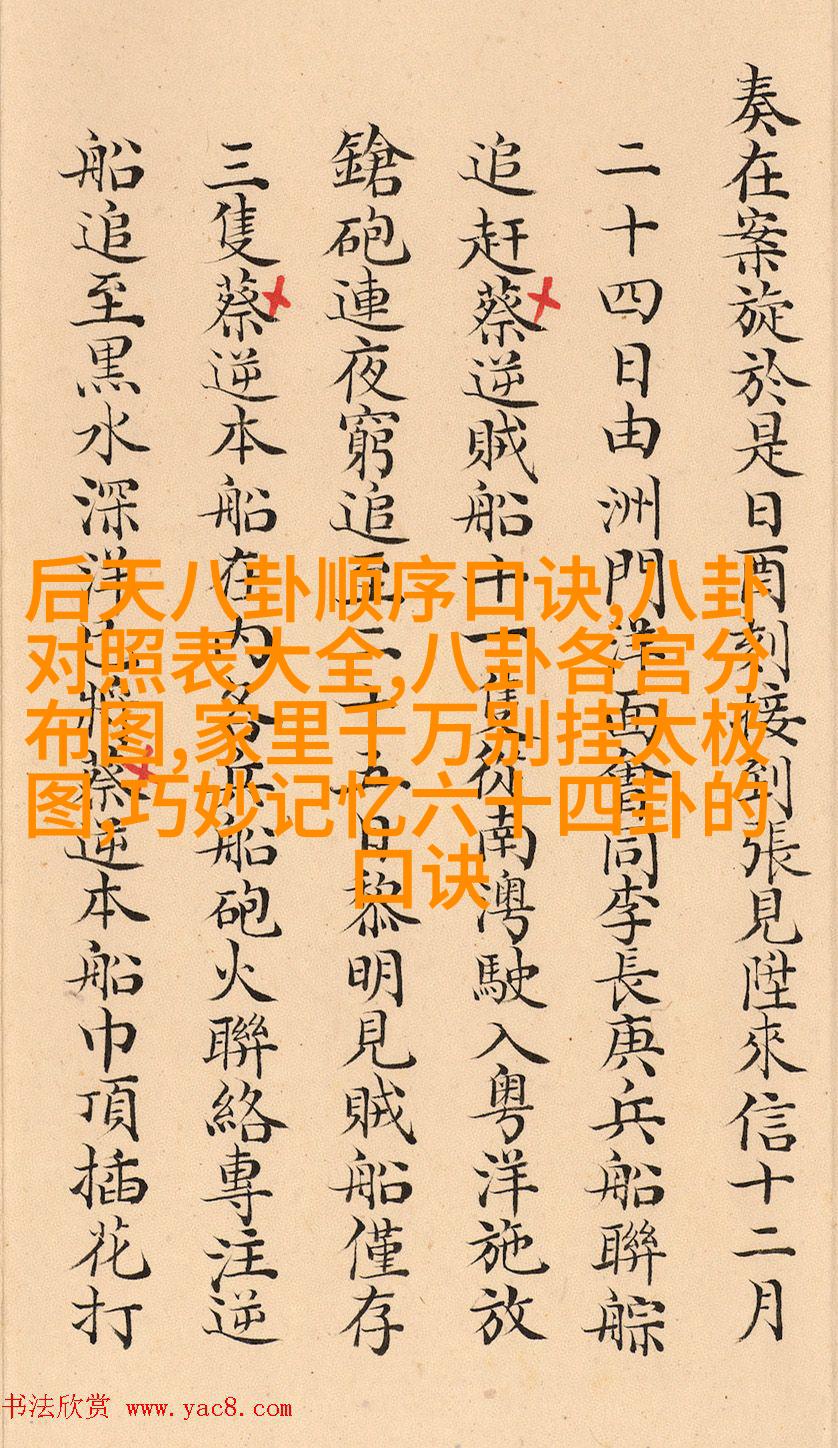 奏在案旋於是日酉刻接到張見陞來信十二月
二十四日由洲門洋面會同李長庚兵船聯䑸
追赶蔡逆賊船十一隻從南澳駛入粵洋施放
鎗砲連夜窮追至二十五日黎明見賊船僅存
三隻蔡逆本船在内各兵船砲火聯絡專注逆
船追至黒水深洋已將蔡逆本船巾頂插花打
后天八卦顺序口诀,八卦
对照表大全,八卦各宫分
布图,家里千万别挂太极
图,巧妙记忆六十四卦的
口诀
书法欣赏 www.yac8.com